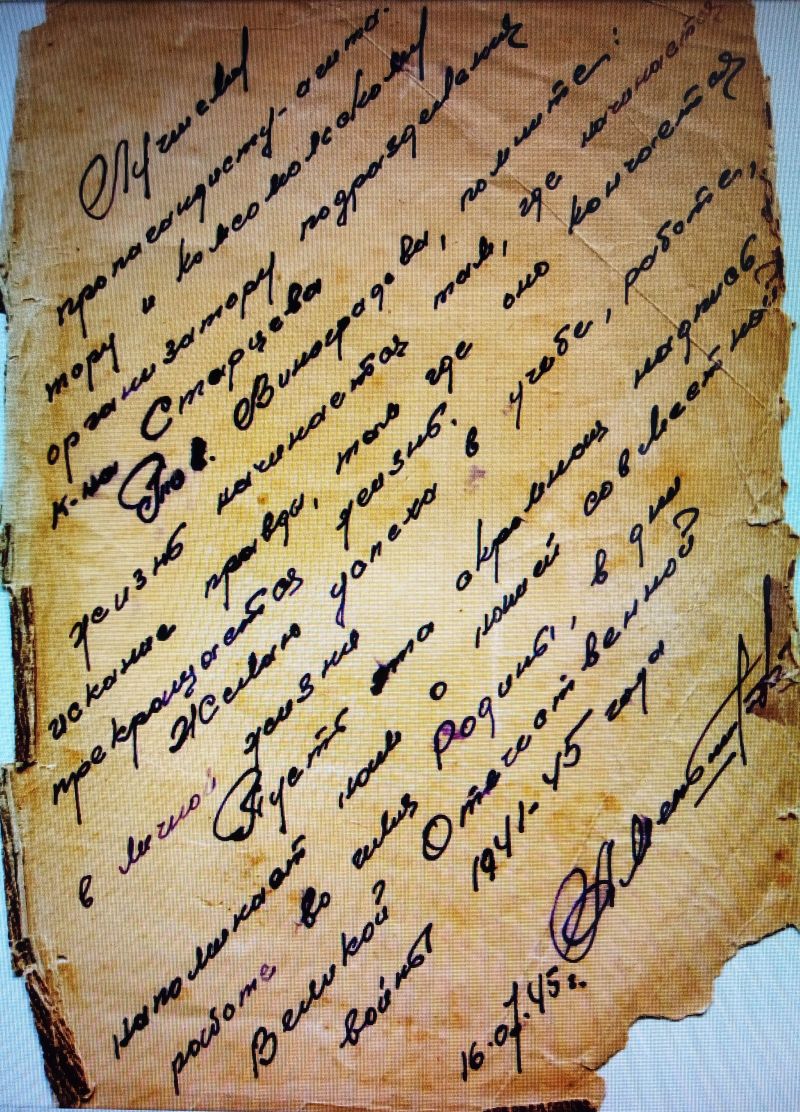 Лучшему
пропагандисту-агита-
тору и комсомольскому
организатору подразделения
к-на Старцева
Тов. Виноградова, помните:
жизнь начинается там, где начинается
искание правды, там где оно кончается
прекращается жизнь.
Желаю успеха в учебе, работе,
в личной жизни
Пусть эта скромная надпись
напоминает нам о нашей совместной
работе во имя родины, в дни
Великой Отечественной
войны 1941-45 года
16.07.45г.